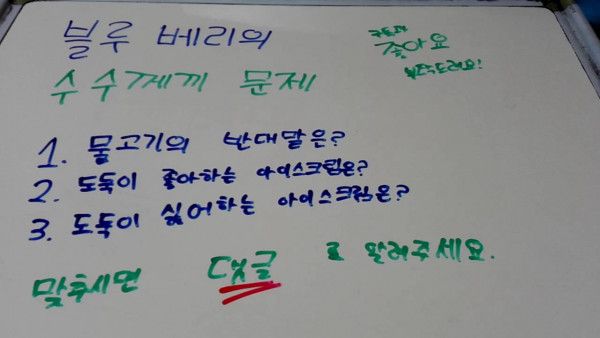 블루 베리의
수수께끼 문제
좋아요
부탁드려요!
1. 물고기의 반대말은?
2. 도둑이 좋아하는 아이스크림은?
3. 도둑이 싫어하는 아이스크림은?
맞추시면 댓글로 알려주세요.